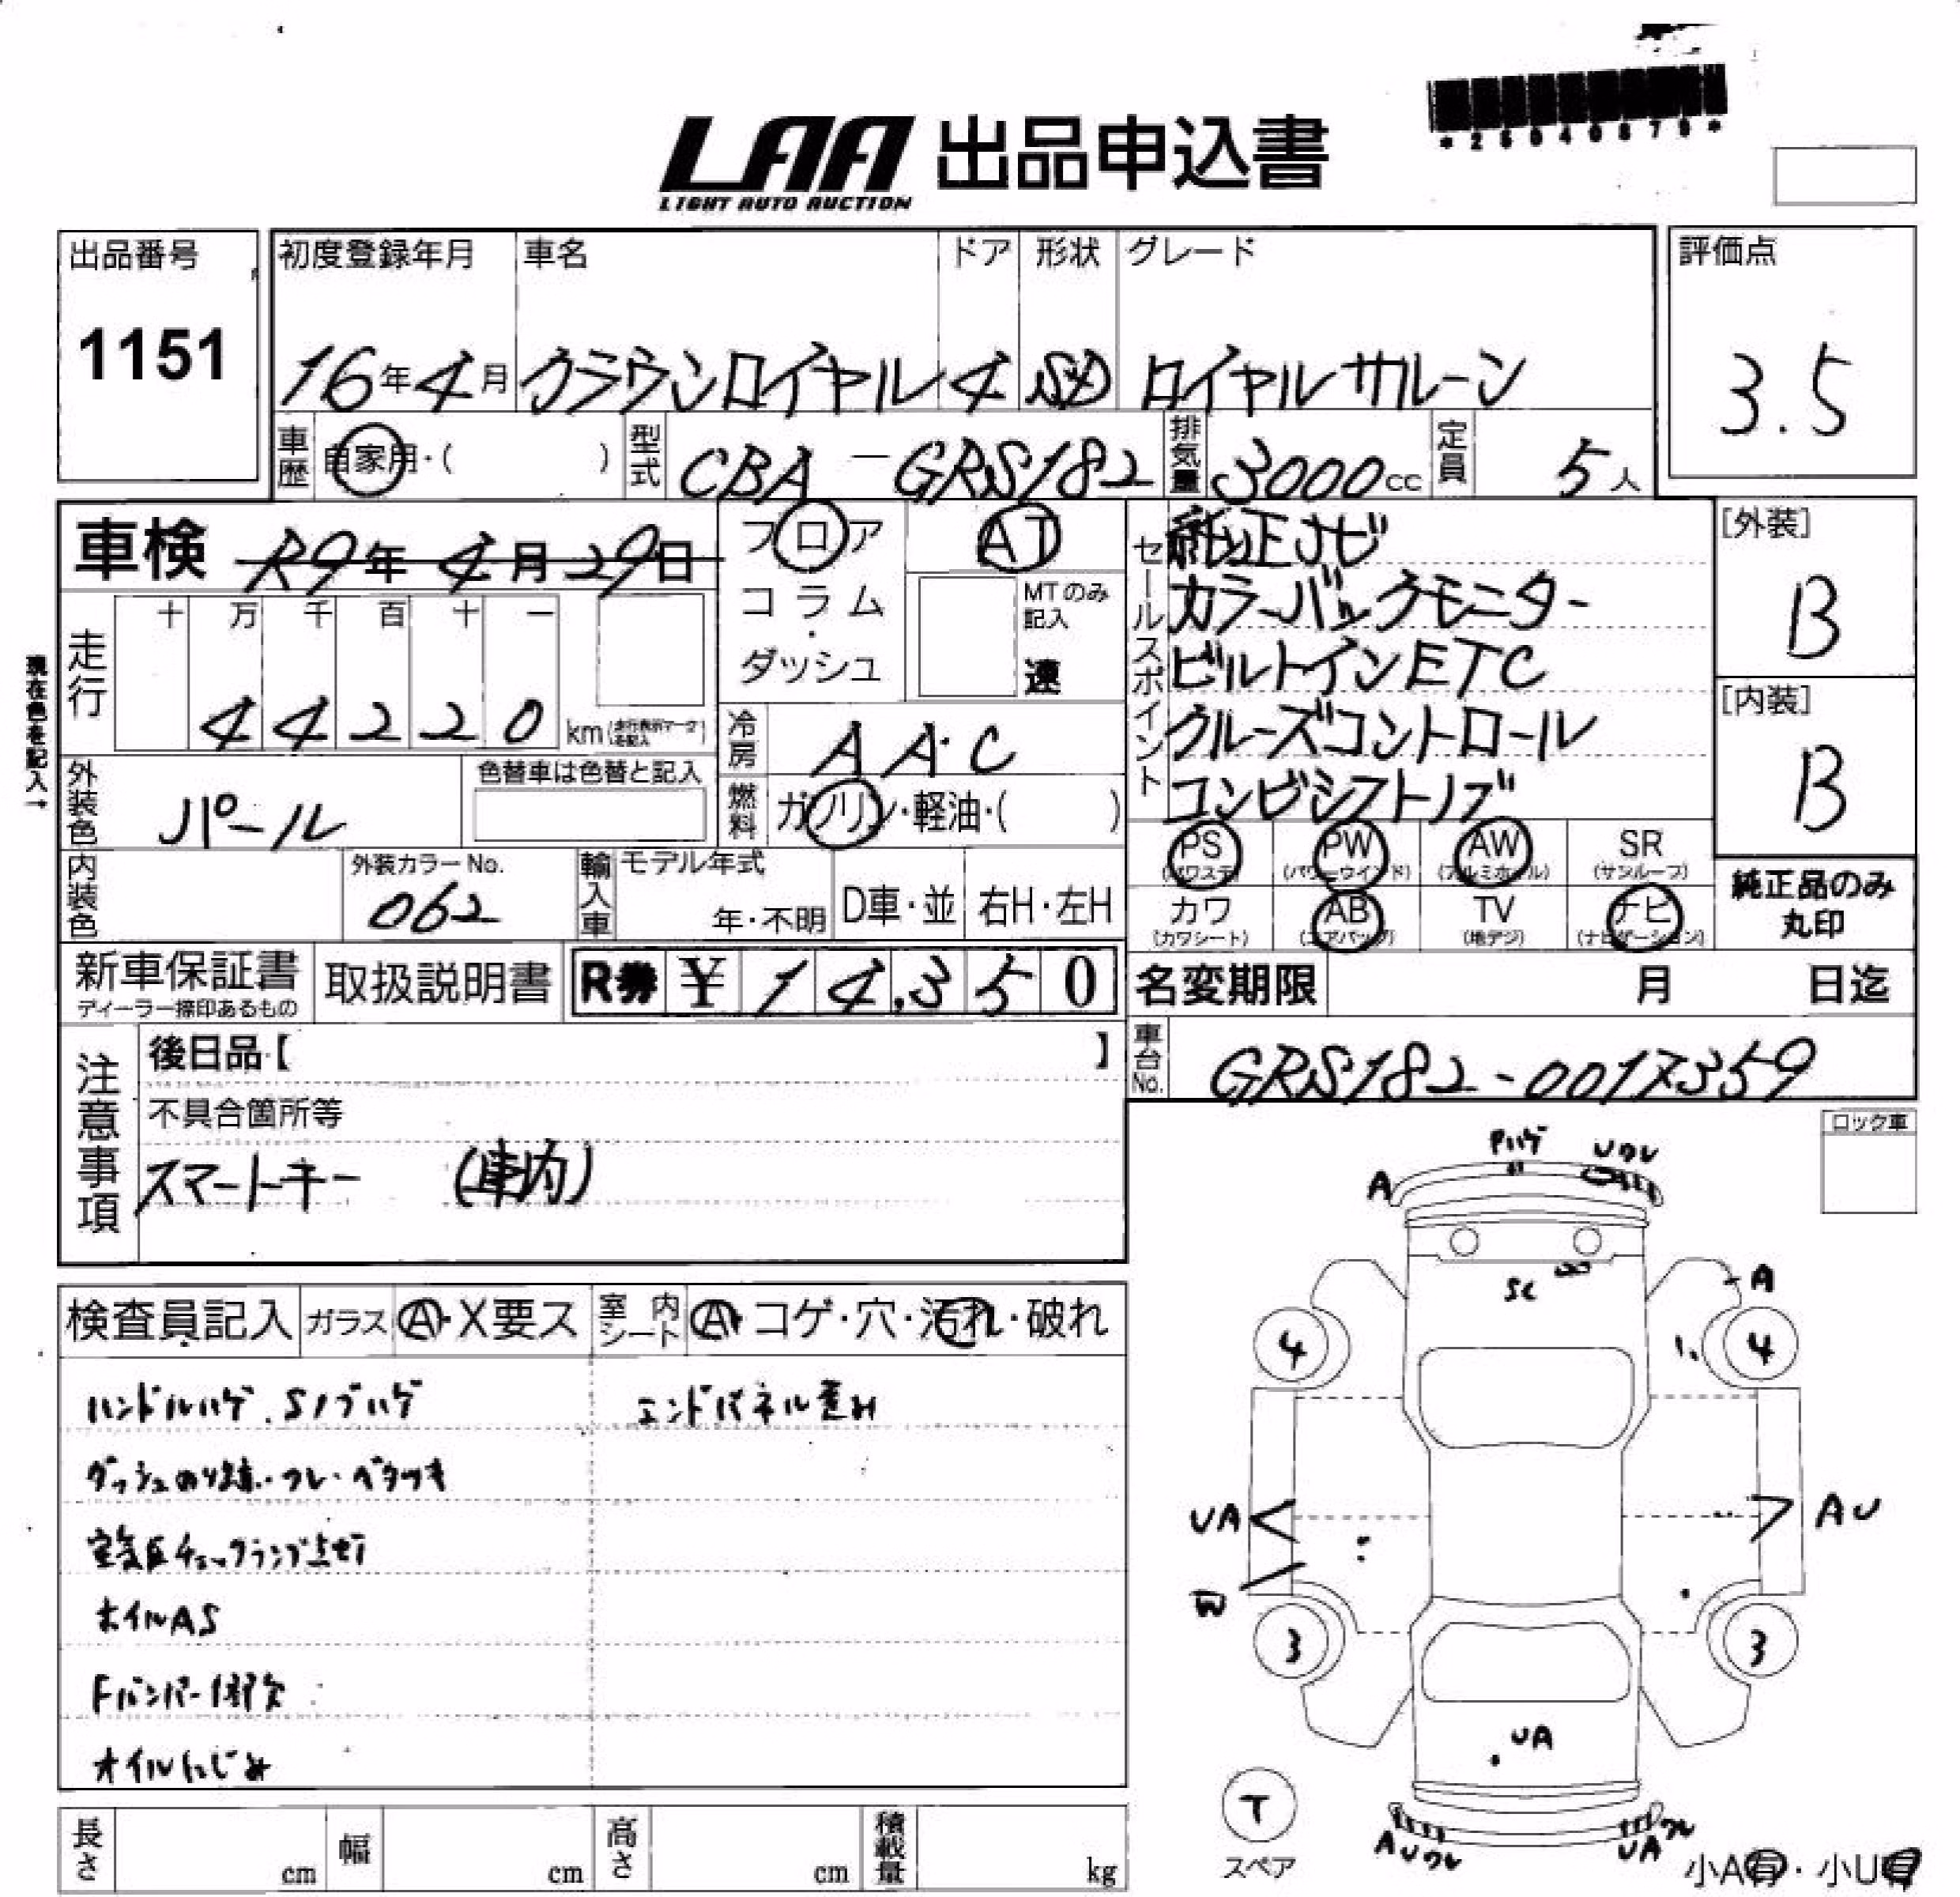 LAA 出品申込書
LIGHT AUTO AUCTION
出品番号
1151
初度登録年月 車名 ドア 形状 グレード
16年4月 クラウンロイヤル 4 SD ロイヤルサルーン
評価点
3.5
車歴 自家用・( ) 型式 CBA-GRS182 排気量 3000cc 定員 5人
車検 R9年4月29日
フロア
コラム
・
ダッシュ
AT
MTのみ
記入
速
現在色を記入→
走行 十 万 千 百 十 一
44220 km(走行表示マークを記入)
冷房 AAC
燃料 ガソリン・軽油・( )
外装色 パール 色替車は色替と記入
内装色 外装カラーNo.
062
輸入車 モデル年式
年・不明 D車・並 右H・左H
セールスポイント
純正ナビ
カラーバックモニター
ビルトインETC
クルーズコントロール
コンビシストノブ
[外装]
B
[内装]
B
PS PW AW SR
(パワステ) (パワーウインド) (アルミホイル) (サンルーフ)
カワ AB TV ナビ
(カワシート) (エアバッグ) (地デジ) (ナビゲーション)
純正品のみ
丸印
新車保証書
ディーラー捺印あるもの
取扱説明書
R券 ¥14,350
名変期限 月 日迄
車台No. GRS182-0017359
注意事項
後日品【 】
不具合箇所等
スマートキー (車内)
ロック車
検査員記入 ガラス A・X要ス 室内シート A・コゲ・穴・汚れ・破れ
ハンドルハゲ.Sノブハゲ エンドパネル歪み
ダッシュのり跡.ワレ.ベタツキ
空気圧チェックランプ点灯
ホイルAS
Fバンパー1部欠
オイルにじみ
Pハゲ
Uワレ
A
SC
A
4
4
UA
AU
W
3
3
UA
T
スペア
AUワレ
UAワレ
小A有・小U有
長さ cm 幅 cm 高さ cm 積載量 kg